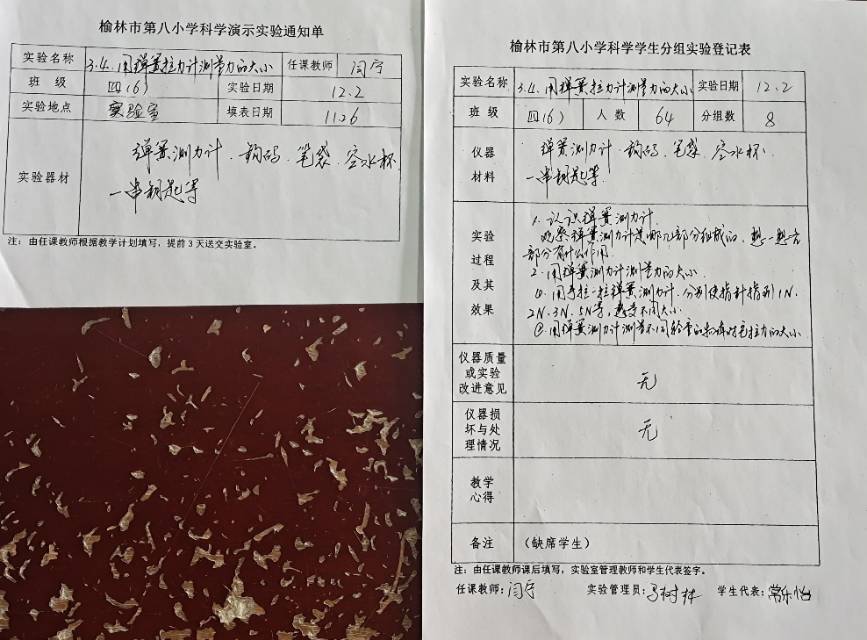 榆林市第八小学科学演示实验通知单
实验名称 3.4.用弹簧拉力计测量力的大小 任课教师 闫宁
班 级 四(6) 实验日期 12.2
实验地点 实验室 填表日期 11.26
实验器材 弹簧测力计、钩码、笔袋、空水杯
一串钥匙等
注：由任课教师根据教学计划填写，提前3天送交实验室。
榆林市第八小学科学学生分组实验登记表
实验名称 3.4.用弹簧拉力计测量力的大小 实验日期 12.2
班 级 四(6) 人 数 64 分组数 8
仪器材料 弹簧测力计、钩码、笔袋、空水杯、
一串钥匙等
实验过程及其效果
1.认识弹簧测力计
观察弹簧测力计是哪几部分组成的，想一想各
部分有什么作用
2.用弹簧测力计测量力的大小
①.用手拉一拉弹簧测力计，分别使指针指到1N、
2N、3N、5N等，感受不同大小
②.用弹簧测力计测量不同轻重的物体时它拉力的大小
仪器质量或实验改进意见 无
仪器损坏与处理情况 无
教学心得
备注 （缺席学生）
注：由任课教师课后填写，实验室管理教师和学生代表签字。
任课教师：闫宁 实验管理员：马树林 学生代表：常乐怡